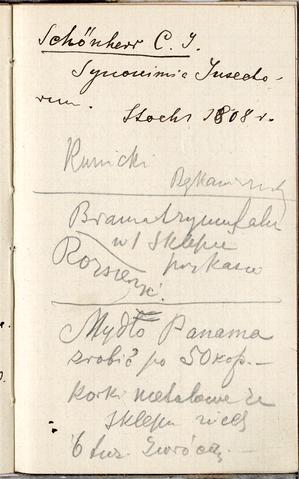 Schönherr C. J.
Synonimia Insecto-
rum.
Stockh 1808 r.
Kunicki
Brama tryumfaln
w 1 sklepie
Rozsierz. przy kasie
Mydło Panama
zrobić po 50 kop. —
Korki metalowe ze
sklepu
6 tuz.